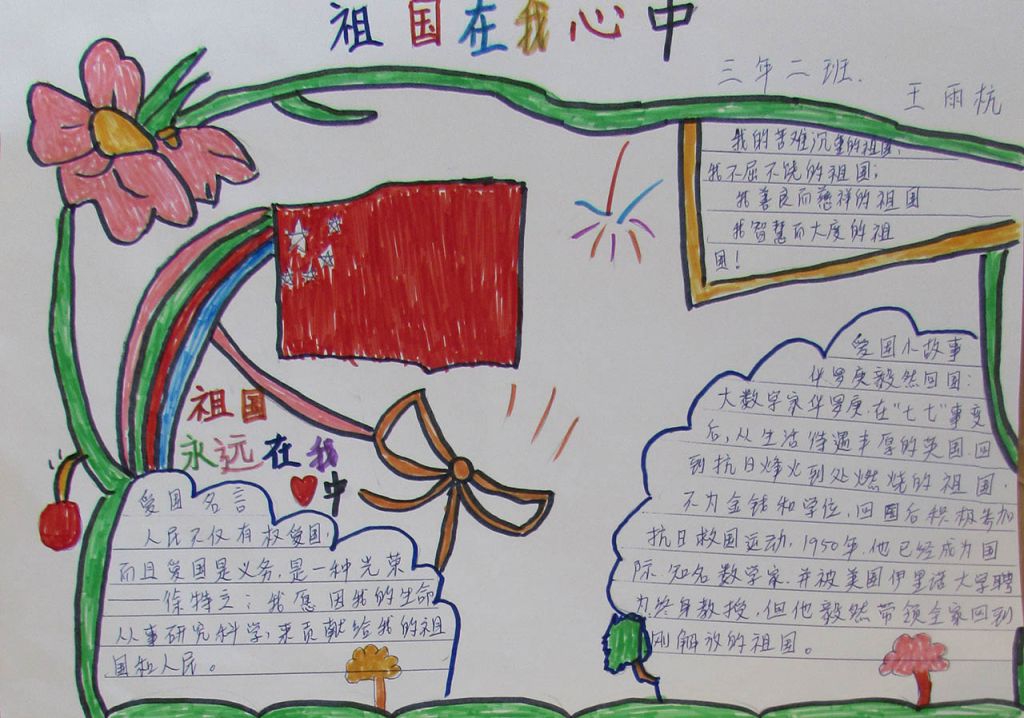 祖国在我心中
三年二班.
王雨杭
我的苦难沉重的祖国,
我不屈不饶的祖国;
我善良而慈祥的祖国
我智慧而大度的祖
国!
祖国
永远在我
中
爱国名言
人民不仅有权爱国,
而且爱国是义务,是一种光荣
——徐特立;我愿因我的生命
从事研究科学,来贡献给我的祖
国和人民。
爱国小故事
华罗庚毅然回国:
大数学家华罗庚在“七七”事变
后,从生活待遇丰厚的英国回
到抗日烽火到处燃烧的祖国.
不为金钱和学位,回国后积极参加
抗日救国运动.1950年,他已经成为国
际知名数学家.并被美国伊里诺大学聘
为终身教授.但他毅然带领全家回到
刚解放的祖国。